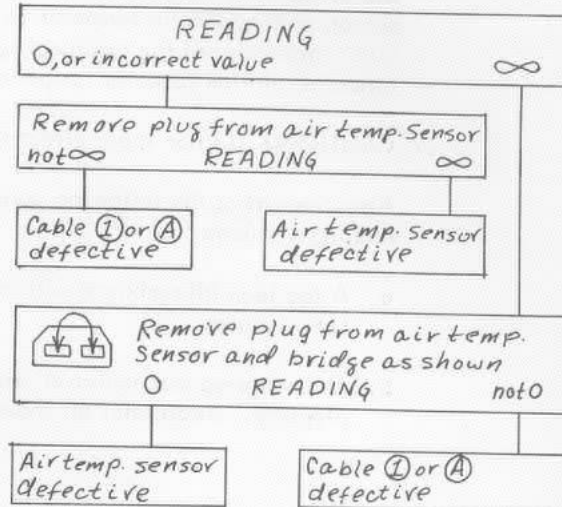 READING
O, or incorrect value ∞
Remove plug from air temp. Sensor
not ∞ READING ∞
Cable ① or Ⓐ
defective
Air temp. sensor
defective
Remove plug from air temp.
Sensor and bridge as shown
O READING not O
Air temp. sensor
defective
Cable ① or Ⓐ
defective